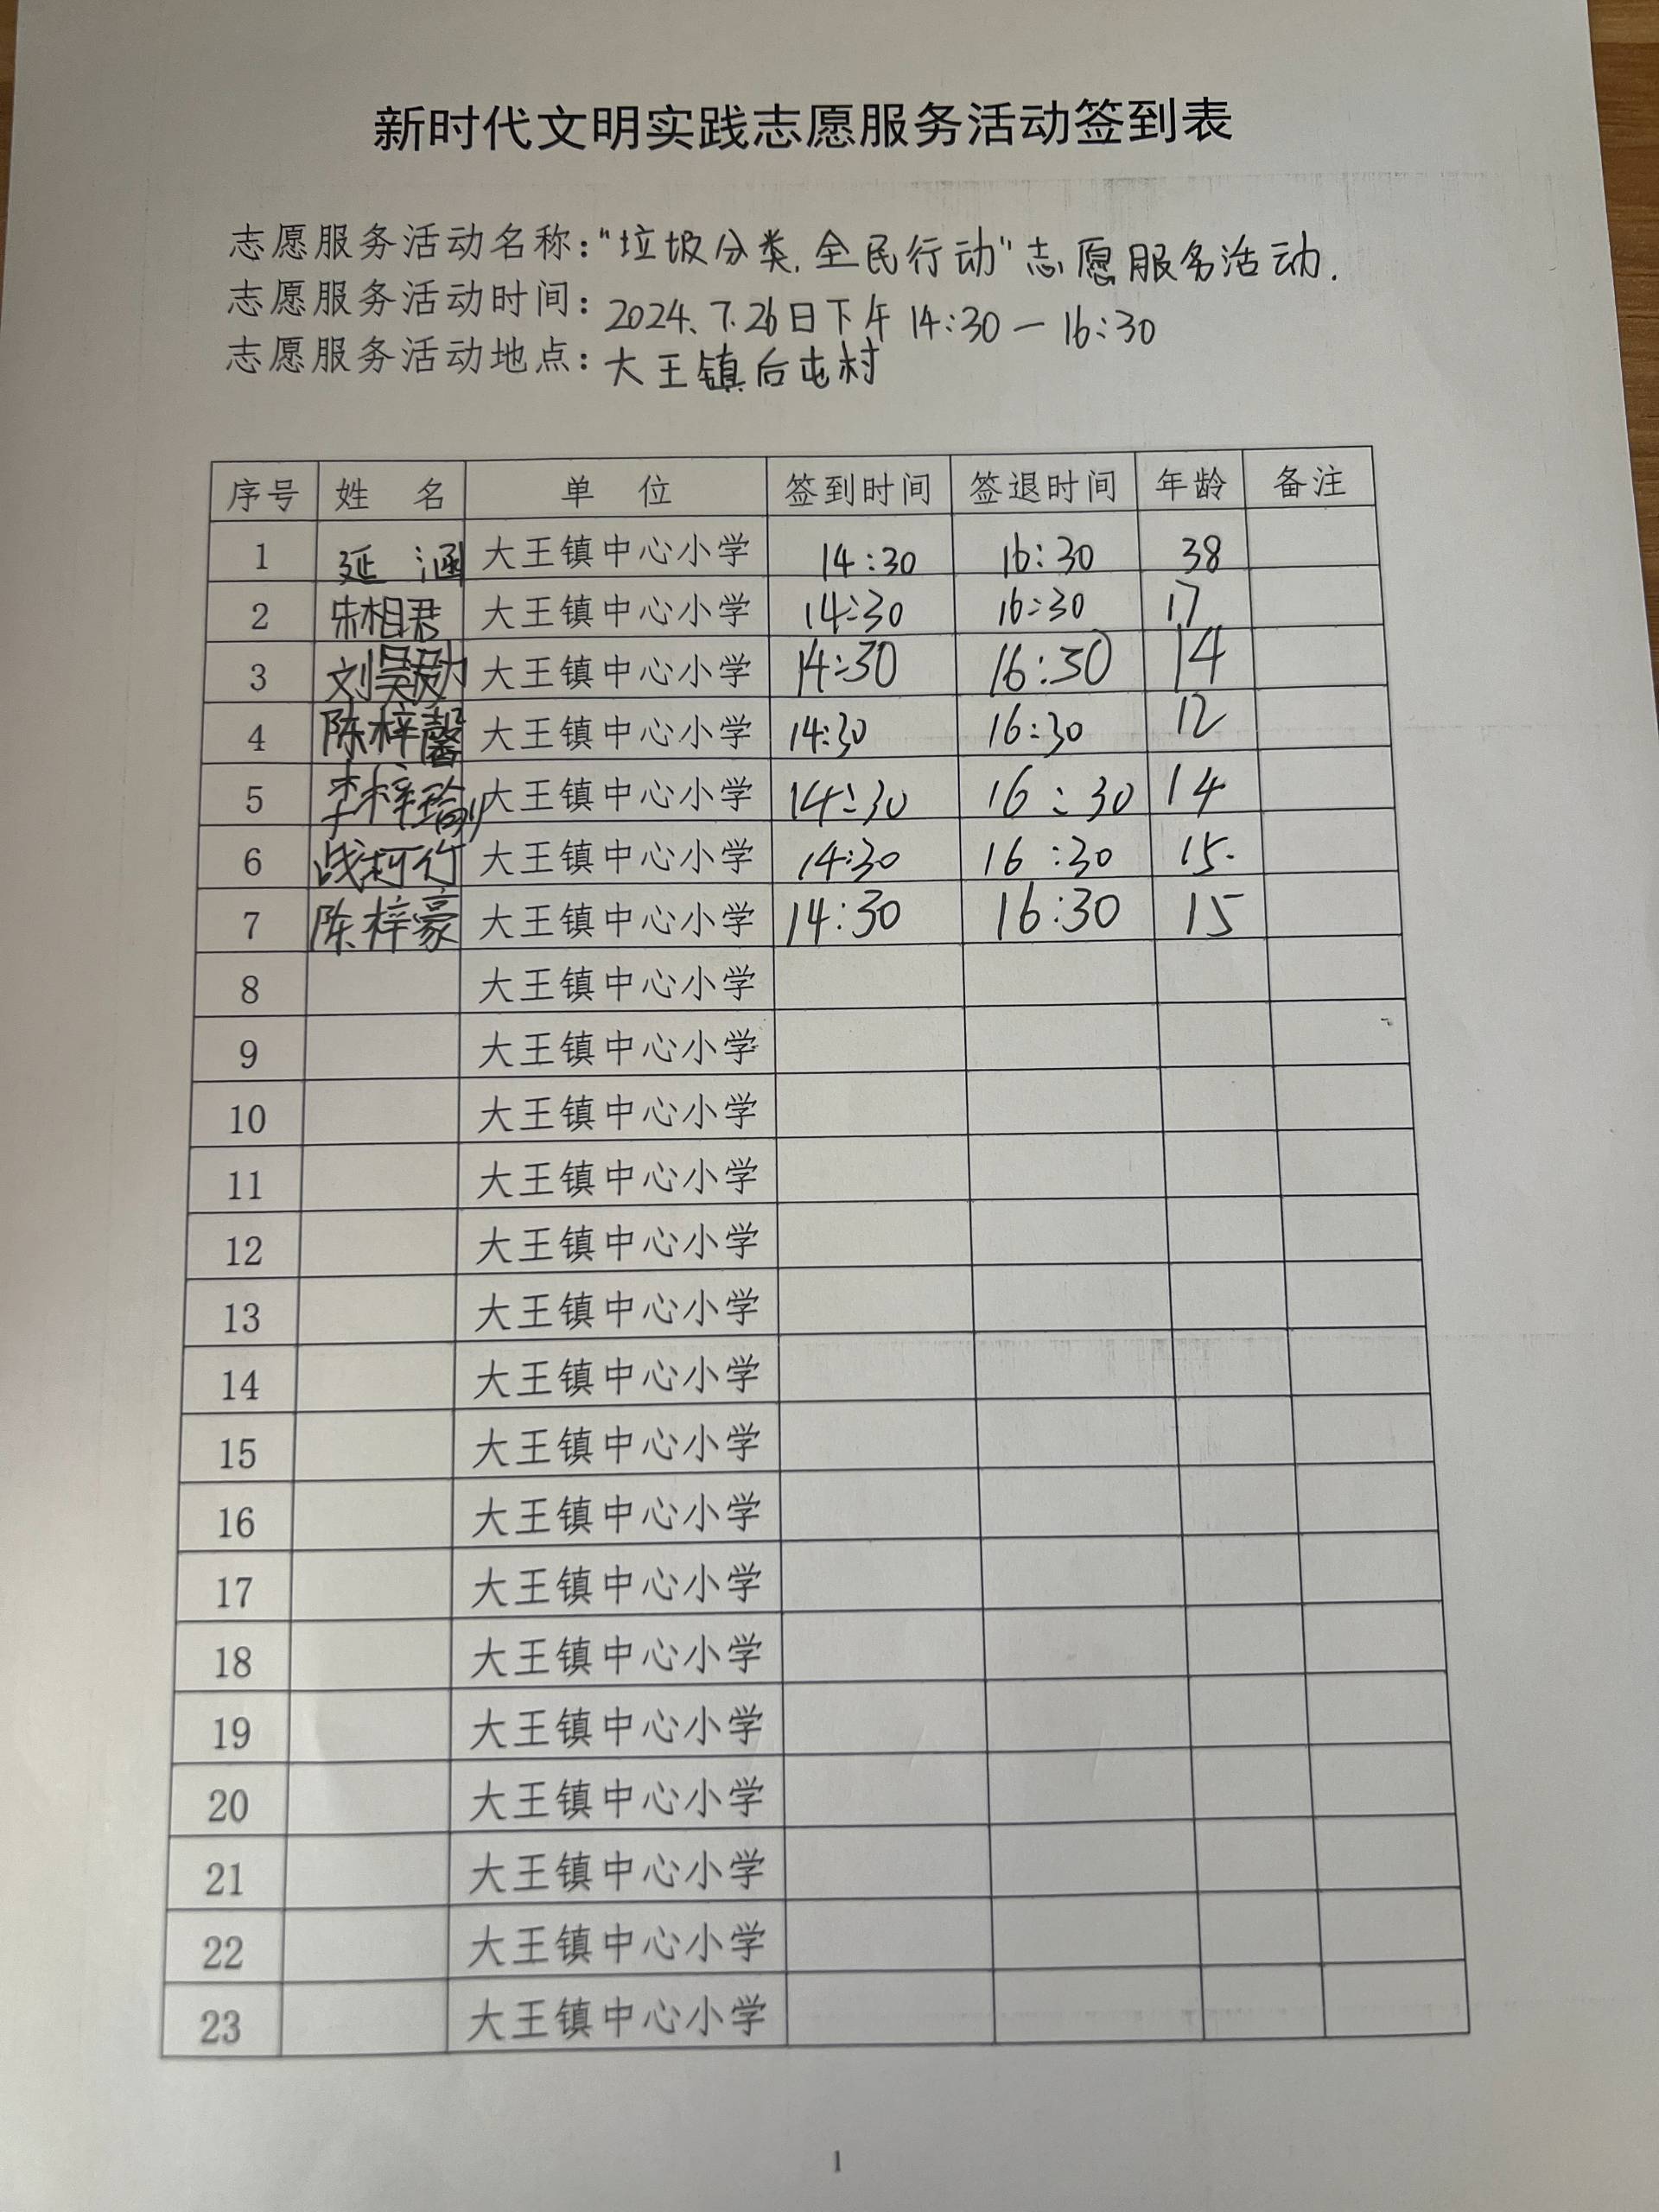 新时代文明实践志愿服务活动签到表
志愿服务活动名称：“垃圾分类.全民行动”志愿服务活动.
志愿服务活动时间：2024.7.26日下午 14:30 — 16:30
志愿服务活动地点：大王镇后屯村
序号 姓 名 单 位 签到时间 签退时间 年龄 备注
1 延 涵 大王镇中心小学 14:30 16:30 38
2 朱相君 大王镇中心小学 14:30 16:30 17
3 刘 大王镇中心小学 14:30 16:30 14
4 陈梓馨 大王镇中心小学 14:30 16:30 12
5 李梓瑜 大王镇中心小学 14:30 16:30 14
6 战珂竹 大王镇中心小学 14:30 16:30 15.
7 陈梓豪 大王镇中心小学 14:30 16:30 15
8 大王镇中心小学
9 大王镇中心小学
10 大王镇中心小学
11 大王镇中心小学
12 大王镇中心小学
13 大王镇中心小学
14 大王镇中心小学
15 大王镇中心小学
16 大王镇中心小学
17 大王镇中心小学
18 大王镇中心小学
19 大王镇中心小学
20 大王镇中心小学
21 大王镇中心小学
22 大王镇中心小学
23 大王镇中心小学
1